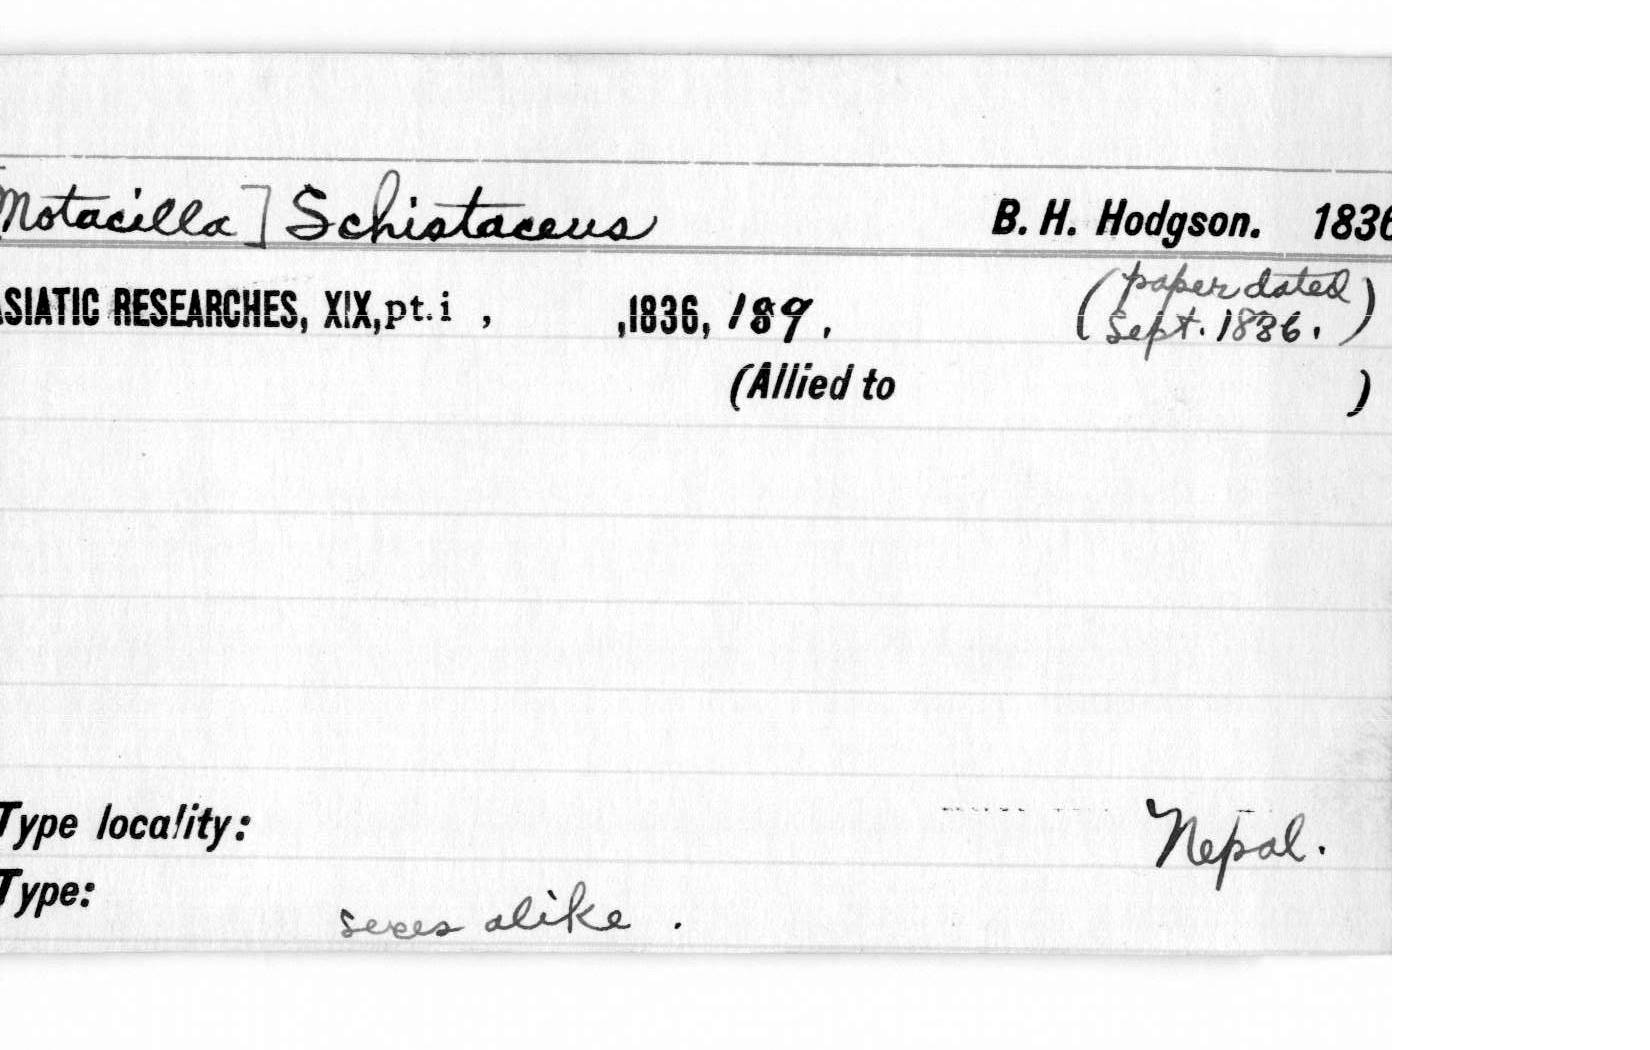 Motacilla] Schistaceus B. H. Hodgson. 1836
ASIATIC RESEARCHES, XIX, pt. i , ,1836, 189 . (paper dated
Sept. 1836.)
(Allied to )
Type locality: Nepal.
Type:
sexes alike .